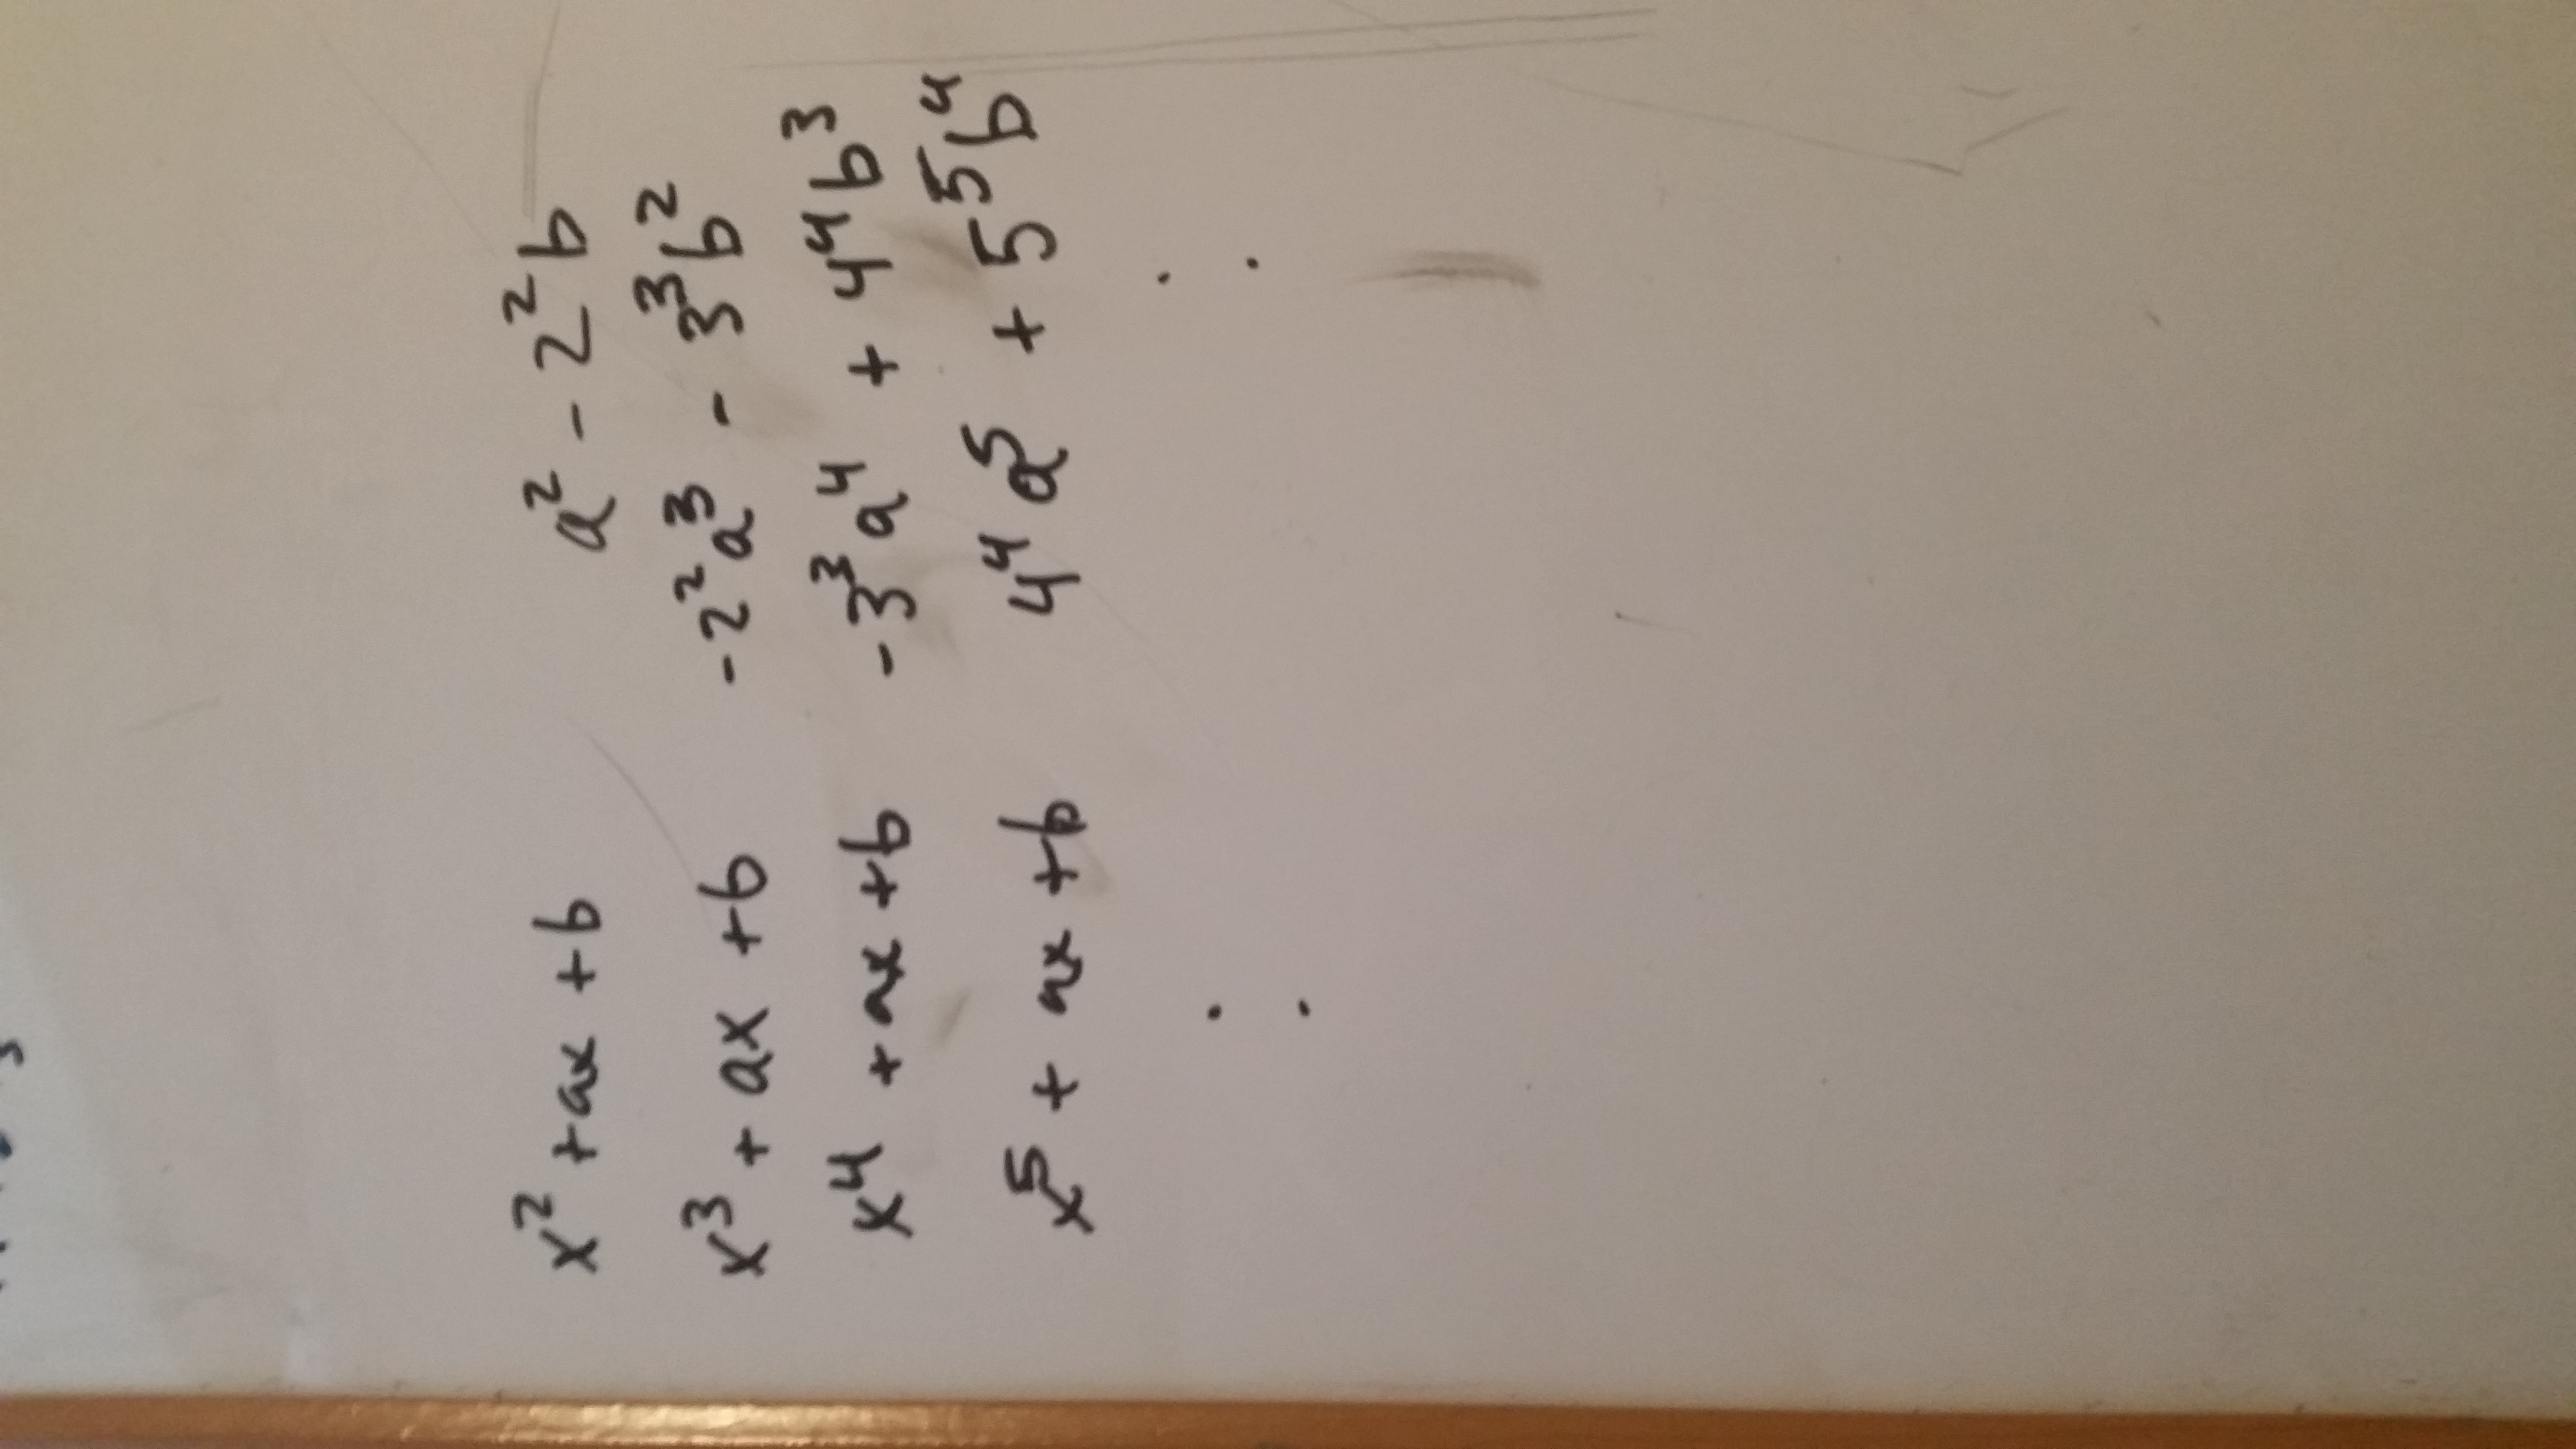 x² + ax + b a² - 2²b
x³ + ax + b -2²a³ - 3³b²
x⁴ + ax + b -3³a⁴ + 4⁴b³
x⁵ + ax + b 4⁴a⁵ + 5⁵b⁴
: :